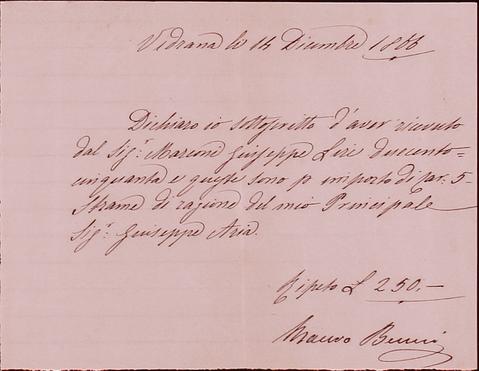 Vedrana lì 14 Dicembre 1866
Dichiaro io sottoscritto d'aver ricevuto
dal Sig.r Marconi Giuseppe Lire duecento=
cinquanta e queste sono p importo di Car: 5-
Strame di ragione del mio Principale
Sig.r Giuseppe Aria.
Ripeto L 250.—